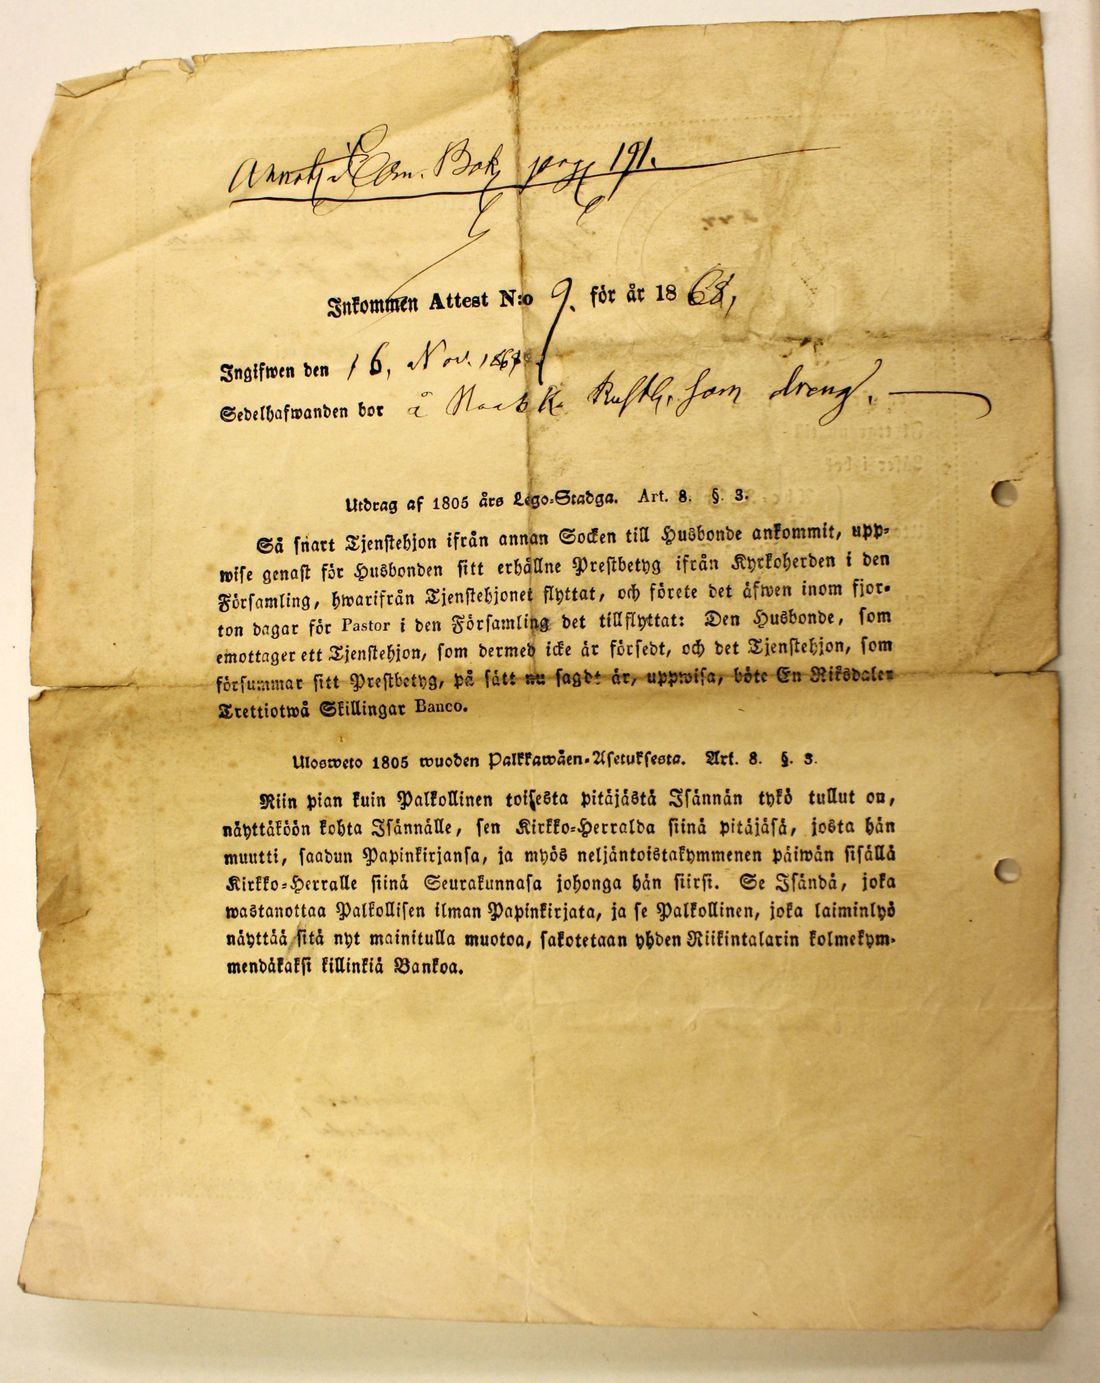 Bok pag 191.
Inkommen Attest N:o 9. för år 1868,
Ingifwen den 16, Nov. 1867
Sedelhafwanden bor å som dreng.
Utdrag af 1805 års Lego-Stadga. Art. 8. §. 3.
Så snart Tjenstehjon ifrån annan Socken till Husbonde ankommit, upp-
wise genast för Husbonden sitt erhållne Prestbetyg ifrån Kyrkoherden i den
Församling, hwarifrån Tjenstehjonet flyttat, och förete det äfwen inom fjor-
ton dagar för Pastor i den Församling det tillflyttat: Den Husbonde, som
emottager ett Tjenstehjon, som dermed icke är försedt, och det Tjenstehjon, som
försummar sitt Prestbetyg, på sätt nu sagdt är, uppwisa, böte En Riksdaler
Trettiotwå Skillingar Banco.
Ulosweto 1805 wuoden Palkkawäen-Asetuksesta. Art. 8. §. 3.
Niin pian kuin Palkollinen toisesta pitäjästä Isännän tykö tullut on,
näyttäköön kohta Isännälle, sen Kirkko-Herralda siinä pitäjäsä, josta hän
muutti, saadun Papinkirjansa, ja myös neljäntoistakymmenen päiwän sisällä
Kirkko-Herralle siinä Seurakunnasa johonga hän siirsi. Se Isändä, joka
wastanottaa Palkollisen ilman Papinkirjata, ja se Palkollinen, joka laiminlyö
näyttää sitä nyt mainitulla muotoa, sakotetaan yhden Riikintalarin kolmekym-
mendäkaksi killinkiä Bankoa.